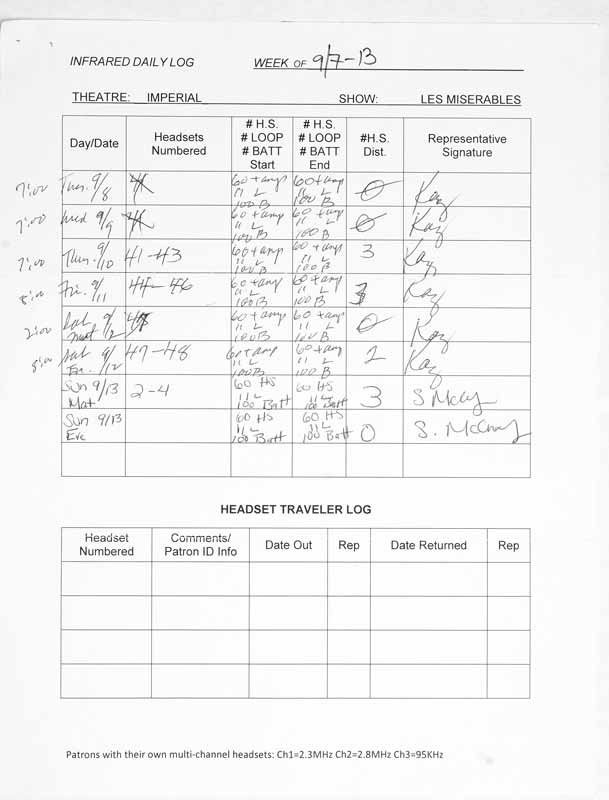 INFRARED DAILY LOG WEEK OF 9/7-13
THEATRE: IMPERIAL SHOW: LES MISERABLES
Day/Date Headsets Numbered # H.S. # LOOP # BATT Start # H.S. # LOOP # BATT End #H.S. Dist. Representative Signature
7:00 Tues. 9/8 60 + amp 11 L 100 B 60 + amp 11 L 100 B 0 Kay
7:00 Wed 9/9 60 + amp 11 L 100 B 60 + amp 11 L 100 B 0 Kay
7:00 Thur. 9/10 41-43 60 + amp 11 L 100 B 60 + amp 11 L 100 B 3 Kay
8:00 Fri. 9/11 44-46 60 + amp 11 L 100 B 60 + amp 11 L 100 B 3 Kay
2:00 Sat mat 9/12 60 + amp 11 L 100 B 60 + amp 11 L 100 B 0 Kay
8:00 Sat. Ev. 9/12 47-48 60 + amp 11 L 100 B 60 + amp 11 L 100 B 2 Kay
Sun 9/13 Mat 2-4 60 HS 11 L 100 Batt 60 HS 11 L 100 Batt 3 S McCy
Sun 9/13 Eve 60 HS 11 L 100 Batt 60 HS 11 L 100 Batt 0 S.
HEADSET TRAVELER LOG
Headset Numbered Comments/ Patron ID Info Date Out Rep Date Returned Rep
Patrons with their own multi-channel headsets: Ch1=2.3MHz Ch2=2.8MHz Ch3=95KHz